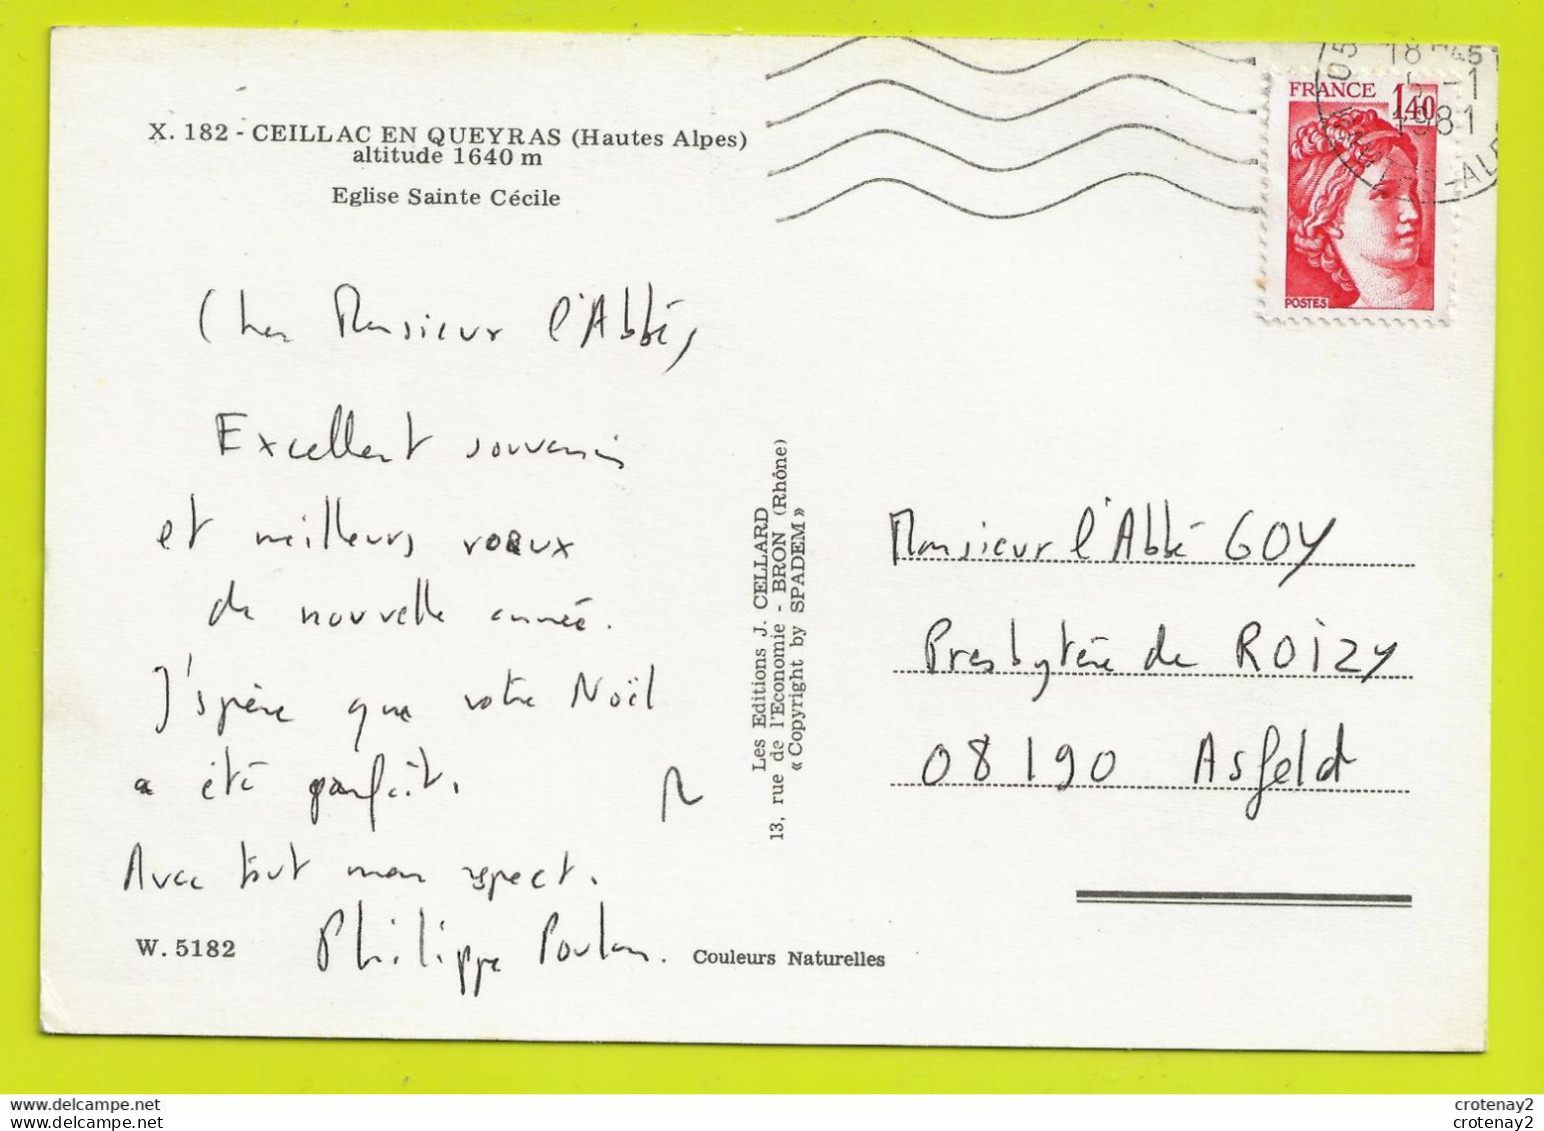 X. 182 - CEILLAC EN QUEYRAS (Hautes Alpes)
altitude 1640 m
Eglise Sainte Cécile
Cher Monsieur l'Abbé,
Excellent souvenir
et meilleurs voeux
de nouvelle année.
J'spère que votre Noël
a été parfait.
Avec tout mon respect.
Philippe
W. 5182
Couleurs Naturelles
Les Editions J. CELLARD
13, rue de l'Economie - BRON (Rhône)
« Copyright by SPADEM »
18H45
5 -1
1981
05
FRANCE 1,40
POSTES
Monsieur l'Abbé GOY
Presbytère de ROIZY
08190 Asfeld
crotenay2
crotenay2